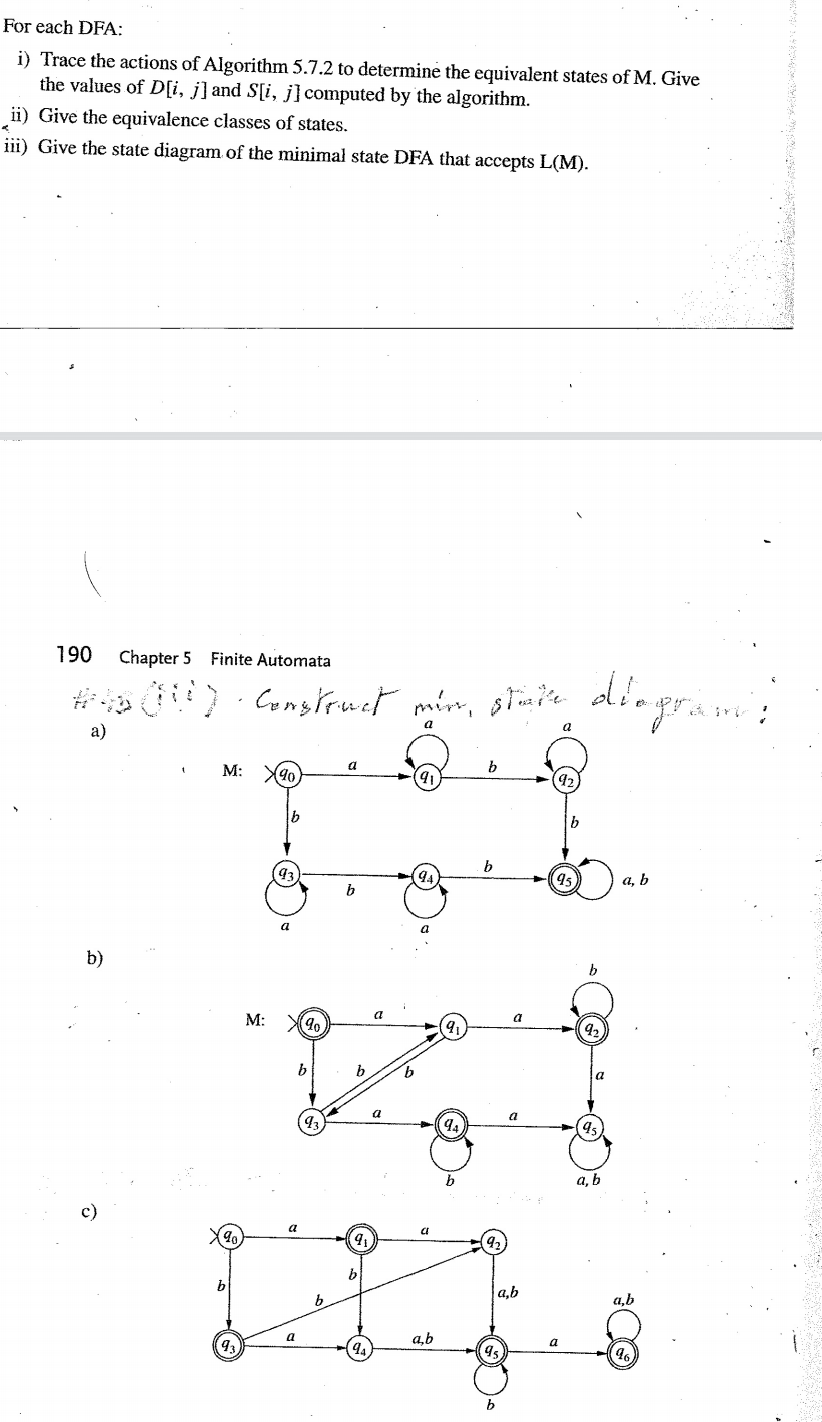 For each DFA:
i) Trace the actions of Algorithm 5.7.2 to determine the equivalent states of M. Give
the values of D[i, j] and S[i, j] computed by the algorithm.
ii) Give the equivalence classes of states.
iii) Give the state diagram of the minimal state DFA that accepts L(M).
190 Chapter 5 Finite Automata
(iii). Construct min. state diagram:
a)
a a
M: q0 a q1 b q2
b b
q3 b q4 b q5 a, b
a a
b)
b
M: q0 a q1 a q2
b b b a
q3 a q4 a q5
b a, b
c)
q0 a q1 a q2
b b b a,b a,b
q3 a q4 a,b q5 a q6
b